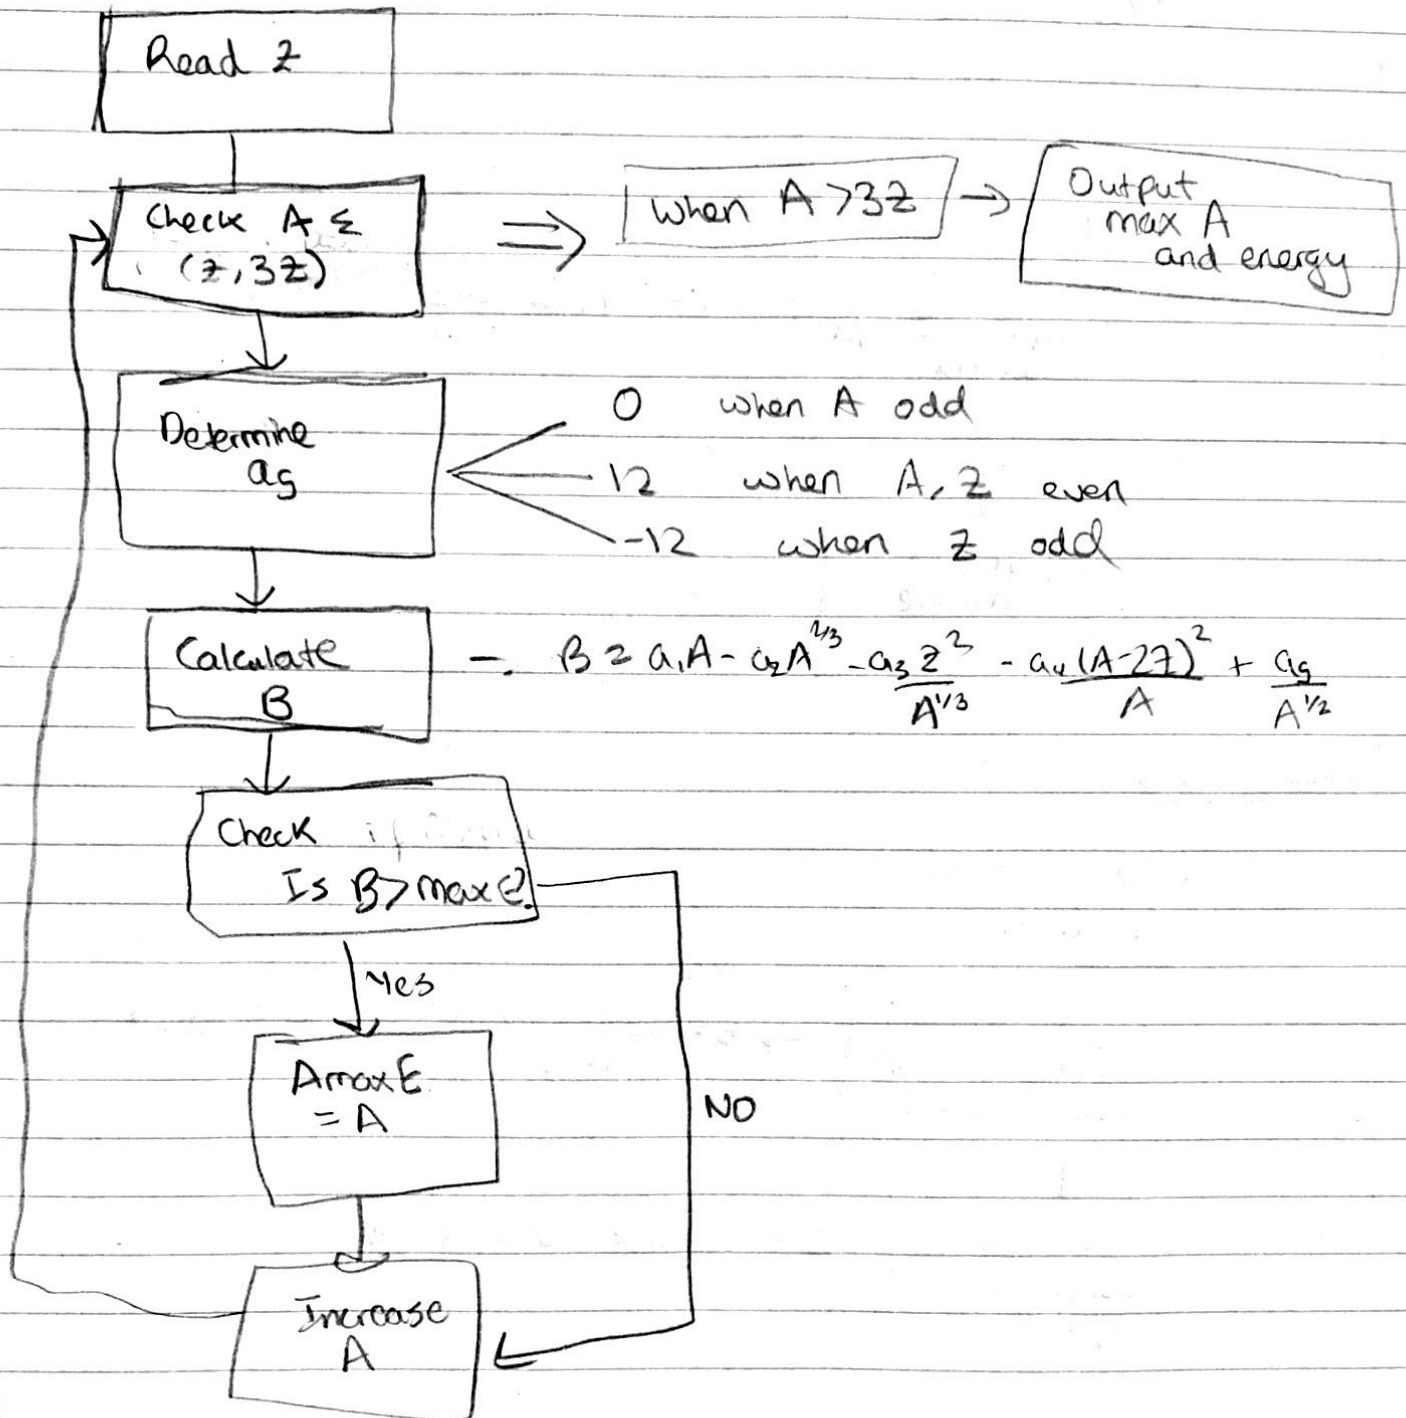 Read Z
Check A ε
(Z, 3Z)
when A > 3Z
Output
max A
and energy
Determine
a5
0 when A odd
12 when A, Z even
-12 when Z odd
Calculate
B
B = a1A - a2A^2/3 - a3 Z^2/A^1/3 - a4 (A-2Z)^2/A + a5/A^1/2
Check
Is B > max E?
Yes
NO
Amax E
= A
Increase
A